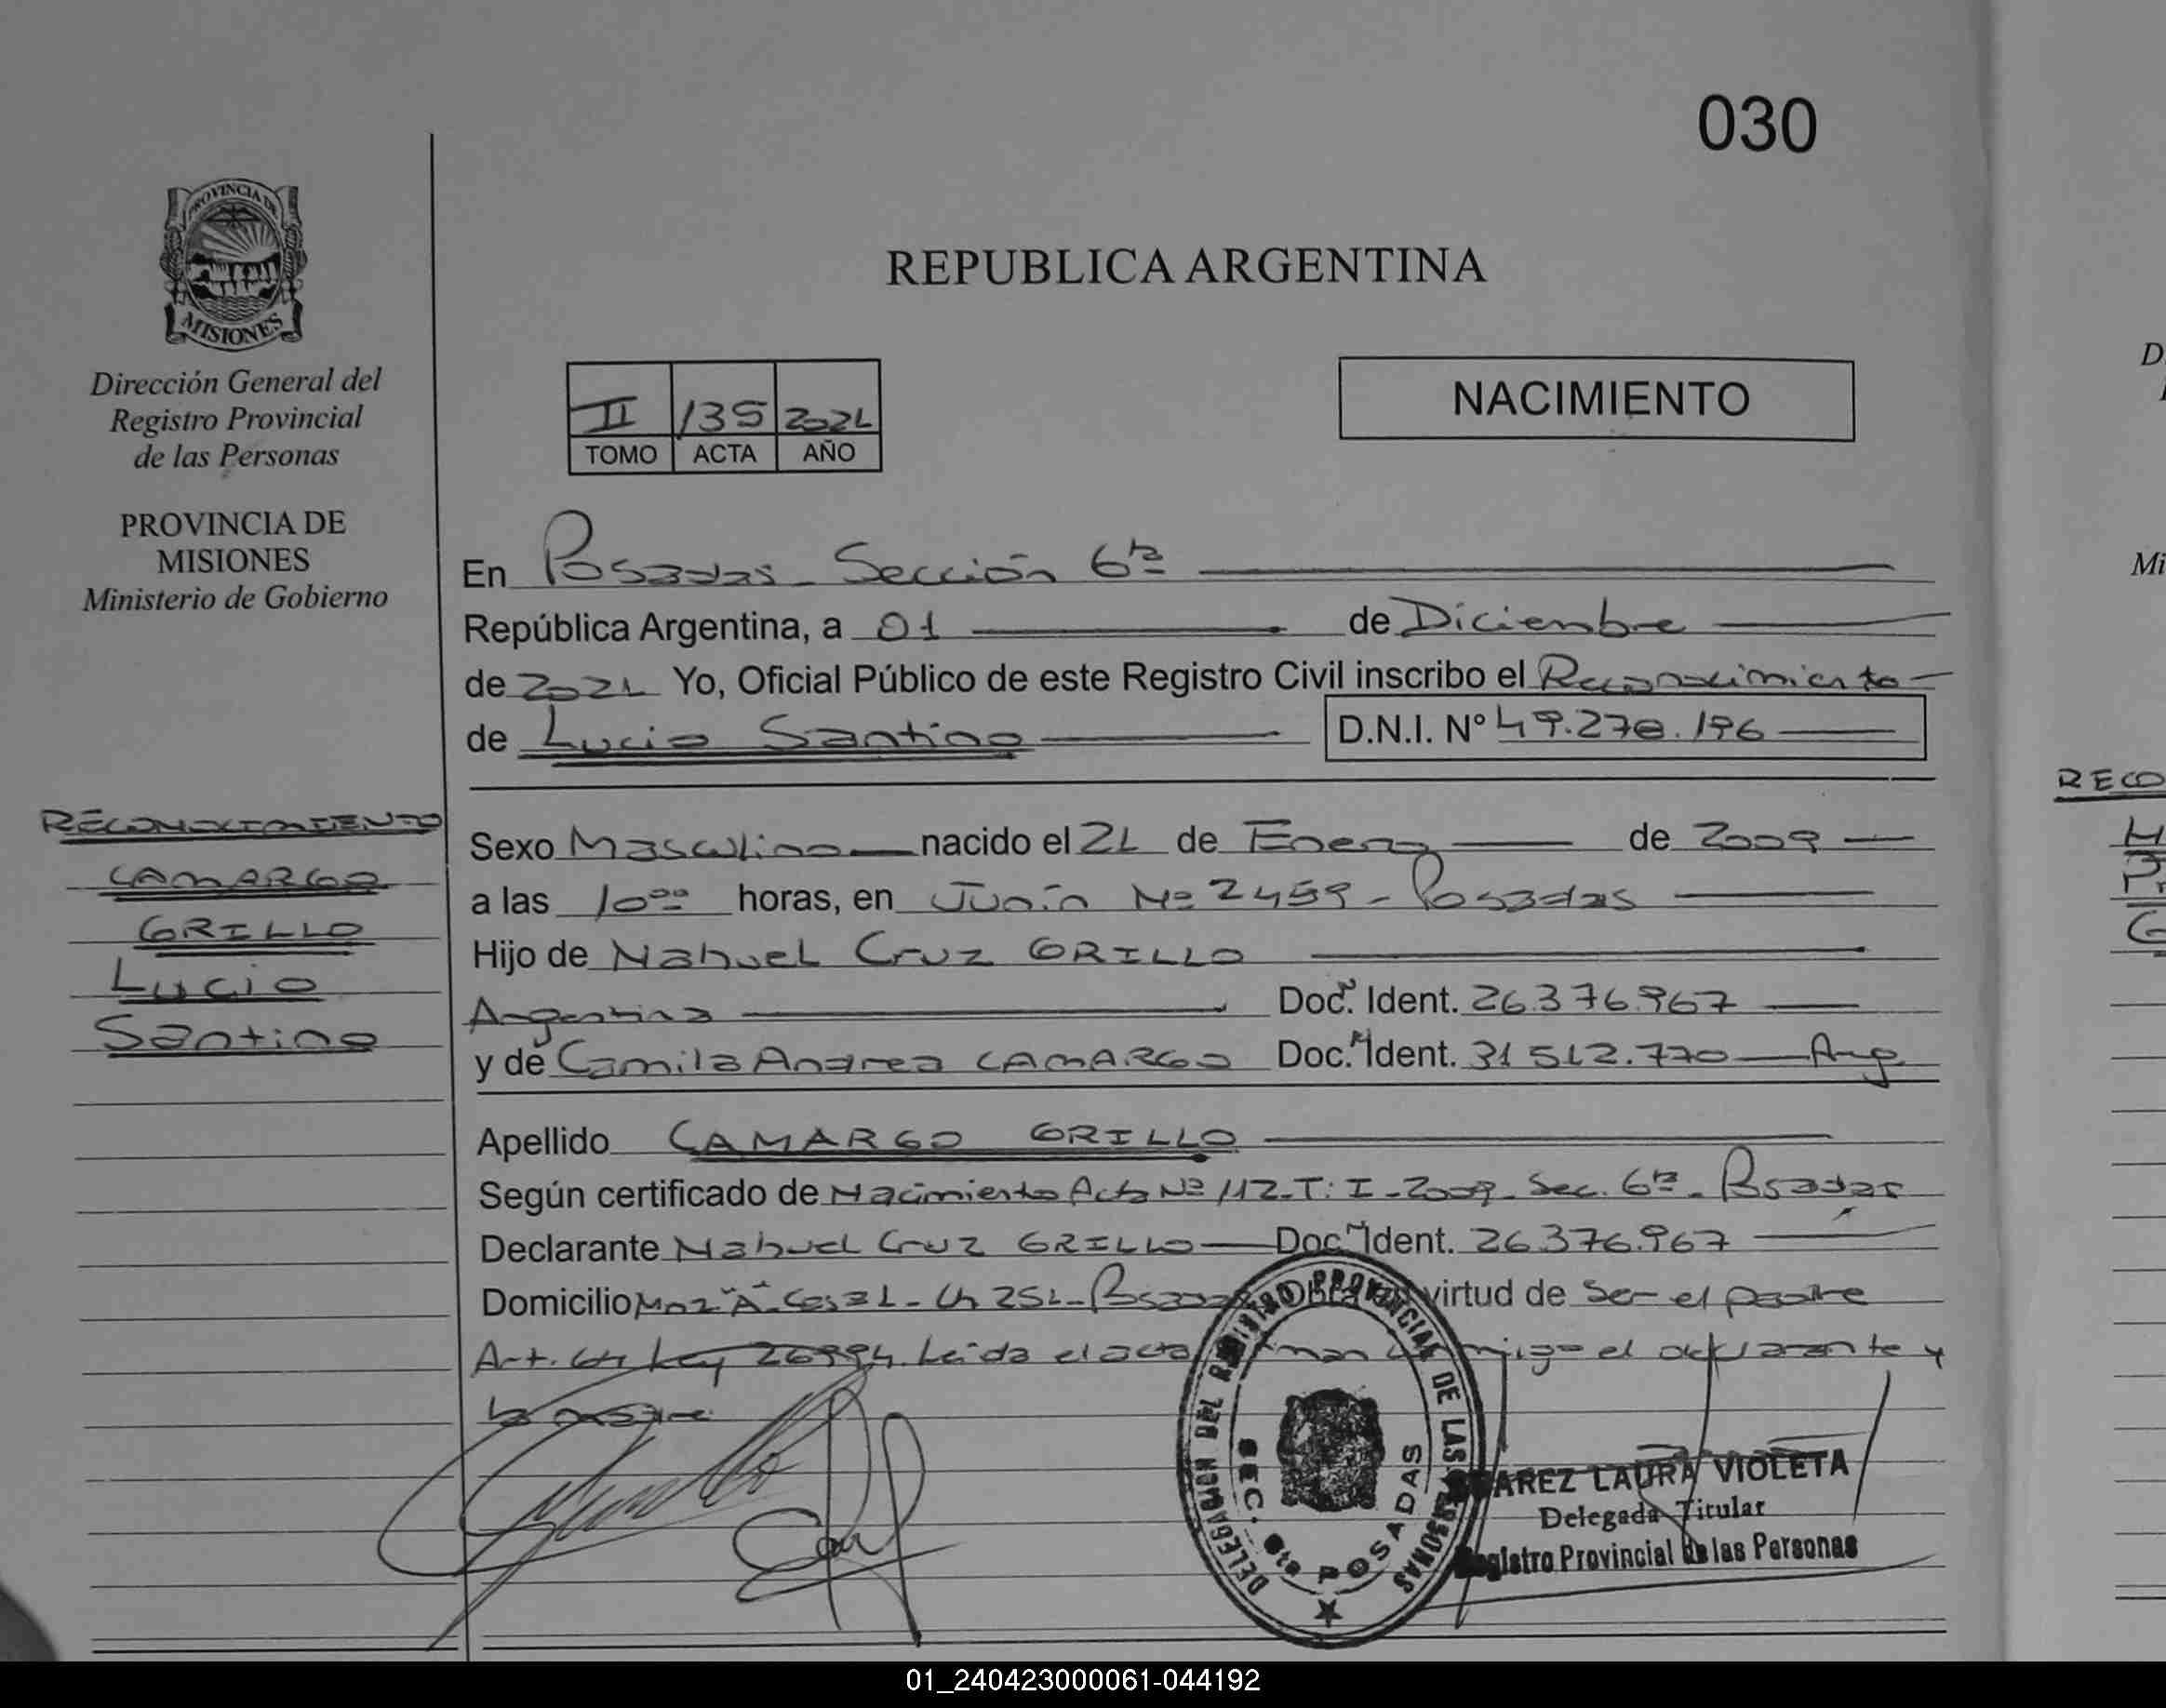 030
PROVINCIA DE
MISIONES
Dirección General del
Registro Provincial
de las Personas
PROVINCIA DE
MISIONES
Ministerio de Gobierno
REPUBLICA ARGENTINA
II 135 2021
TOMO ACTA AÑO
NACIMIENTO
En Posadas - Sección 6ta
República Argentina, a 01 de Diciembre
de 2021 Yo, Oficial Público de este Registro Civil inscribo el Reconocimiento
de Lucio Santino D.N.I. Nº 49.278.196
RECONOCIMIENTO
CAMARGO
GRILLO
Lucio
Santino
Sexo Masculino nacido el 21 de Enero de 2009
a las 10:00 horas, en Junín Nº 2459 - Posadas
Hijo de Nahuel Cruz GRILLO
Argentina Doc. Ident. 26.376.967
y de Camila Andrea CAMARGO Doc. Ident. 31.512.770 - Arg
Apellido CAMARGO GRILLO
Según certificado de Nacimiento Acta Nº 112 - T: I - 2009 - Sec. 6ta - Posadas
Declarante Nahuel Cruz GRILLO Doc. Ident. 26.376.967
Domicilio Mnz "A" Casa 1 - Ch 251 - Posadas Obra en virtud de Ser el padre
Art. Ley 26994. Leida el acta firman conmigo el declarante y
la madre
DELEGACION DEL REGISTRO PROVINCIAL DE LAS PERSONAS
SEC. 6ta POSADAS
SUAREZ LAURA VIOLETA
Delegada Titular
Registro Provincial de las Personas
D
Mi
RECO
01_240423000061-044192